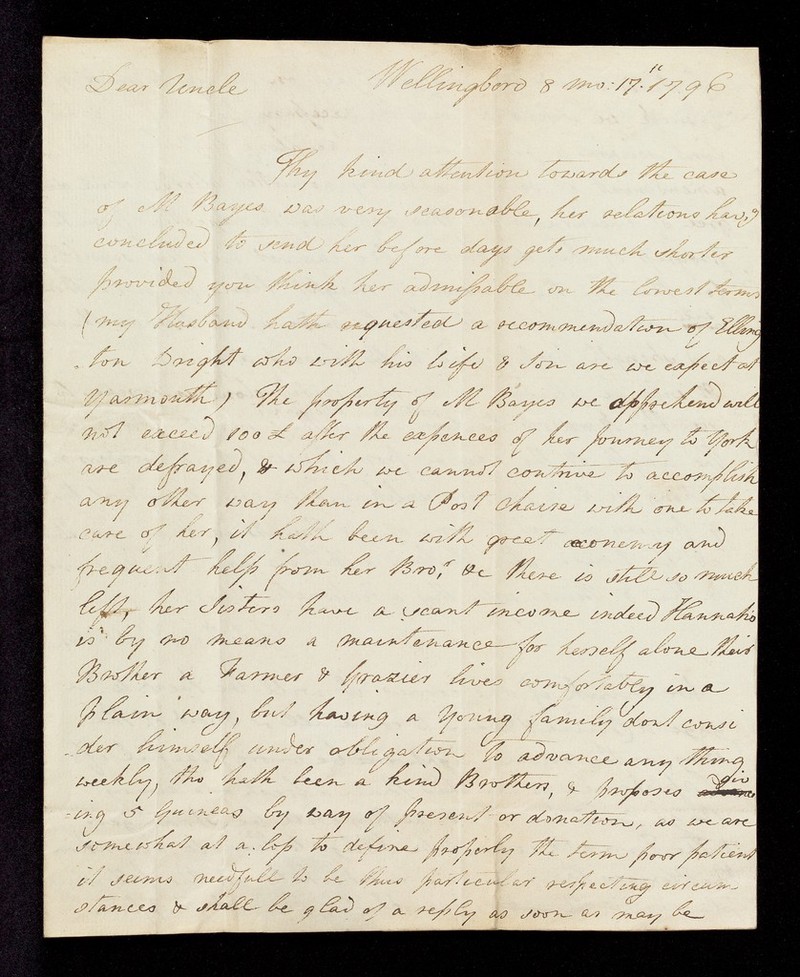 Dear Uncle Wellingboro 8 mo: 17.th 1796
Thy kind attention towards the case
of M Bayes was very seasonable, her relations havg
concluded to send her before days gets much shorter
provided you think her admissable on the lowest terms
(my Husband hath requested a recommendation of Elling
-ton Wright who with his Wife & Son are we expect at
Yarmouth) The property of M Bayes we apprehend will
not exceed 100£ after the expences of her Journey to York
are defrayed, & which we cannot contrive to accomplish
any other way than in a Post Chaise with one to take
care of her, it hath been with great œconemy and
frequent help from her Bror. &c there is still so much
left, her Sisters have a scant income indeed Hannah's
is by no means a maintenance for herself alone their
Brother a Farmer & Grazier lives comfortably in a
plain way, but having a Young family dont consi
-der himself under obligation to advance any thing
weekly, tho hath been a kind Brothers, & proposes giv
-ing 5 Guineas by way of present or donation, as we are
somewhat at a lofs to define properly the term poor patient
it seems needfull to be thus particular respecting circum-
stances & shall be glad of a reply as soon as may be